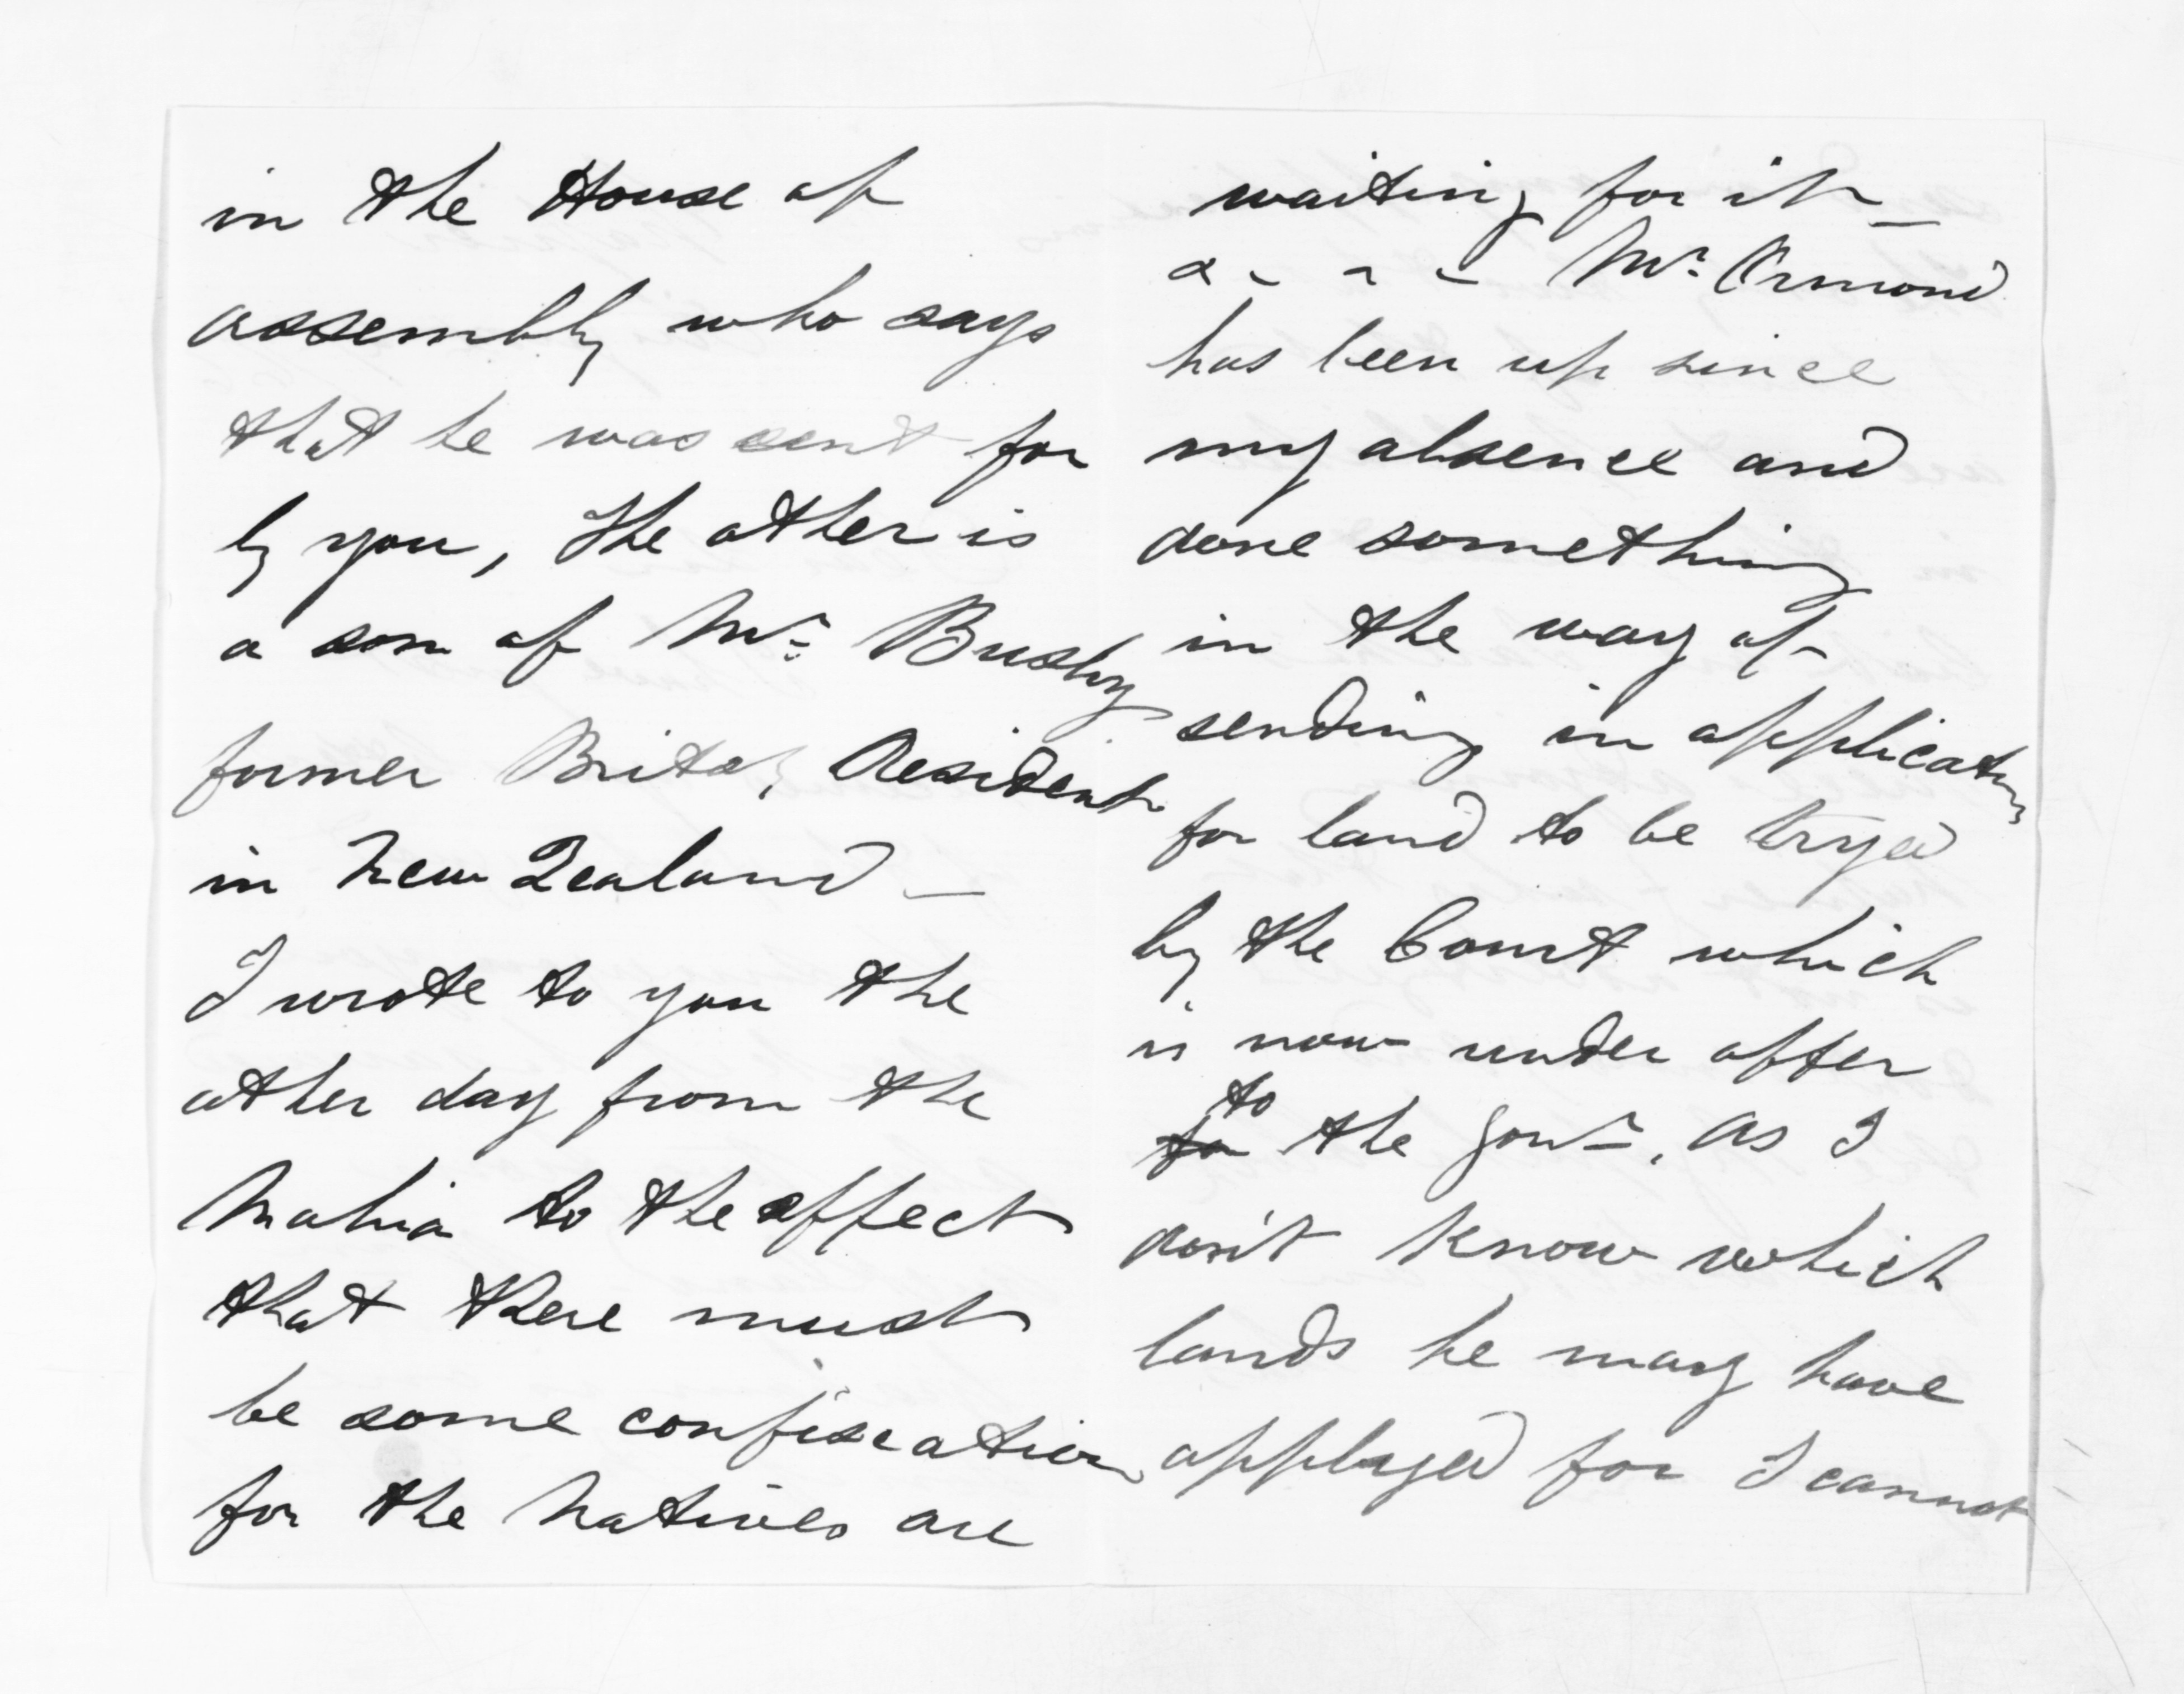 in the House of
assembly who says
that he was sent for
by you, the other is
a son of Mr. Busby
former British Resident
in New Zealand —
I wrote to you the
other day from the
Mahia to the effect
that there must
be some confiscation
for the Natives are
waiting for it —
Mr. Ormond
has been up since
my absence and
done something
in the way of
sending in applications
for land to be tryed
by the Court which
is now under offer
to
for the Govt. As I
don't know which
lands he may have
applyed for I cannot